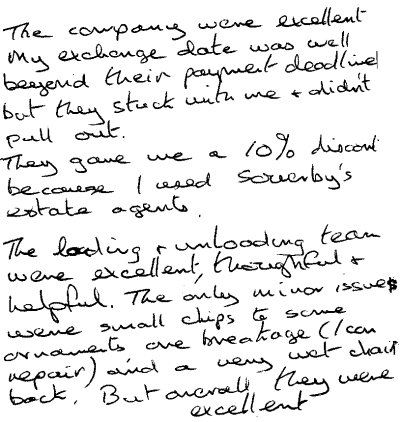 The company were excellent
My exchange date was well
beyond their payment deadline
but they stuck with me & didn't
pull out.
They gave me a 10% discount
because I used Sowerby's
estate agents.
The loading & unloading team
were excellent, thoughtful &
helpful. The only minor issues
were small chips to some
ornaments one breakage (I can
repair) and a very wet chair
back. But overall they were
excellent